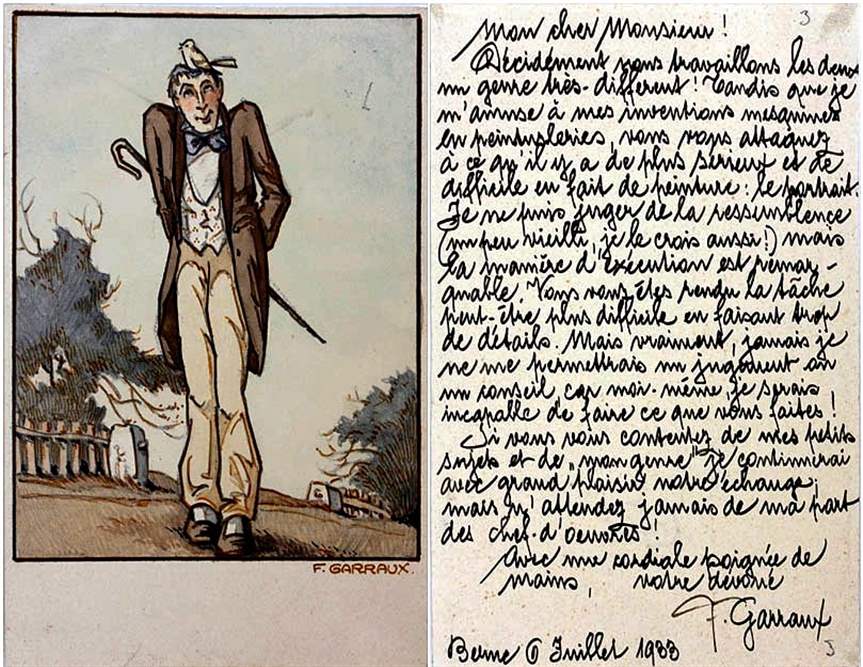 F. GARRAUX.
3
Mon cher Monsieur !
Décidément nous travaillons les deux
un genre très-différent ! Tandis que je
m'amuse à mes inventions mesquines
en peintusleries, vous vous attaquez
à ce qu'il y a de plus serieux et de
difficile en fait de peinture : le portrait.
Je ne puis juger de la ressemblence
(un peu vieilli, je le crois aussi !) mais
la manière d'exécution est remar-
quable. Vous vous êtes rendu la tâche
peut-être plus difficile en faisant trop
de détails. Mais vraiment, jamais je
ne me permettrais un jugement ou
un conseil, car moi-même, je serais
incapable de faire ce que vous faites !
Si vous vous contentez de mes petits
sujets et de "mon genre" je continuerai
avec grand plaisir notre échange;
mais n'attendez jamais de ma part
des chef-d'oeuvres !
Avec une cordiale poignée de
mains, votre dévoué
F. Garraux
Berne 6 Juillet 1933